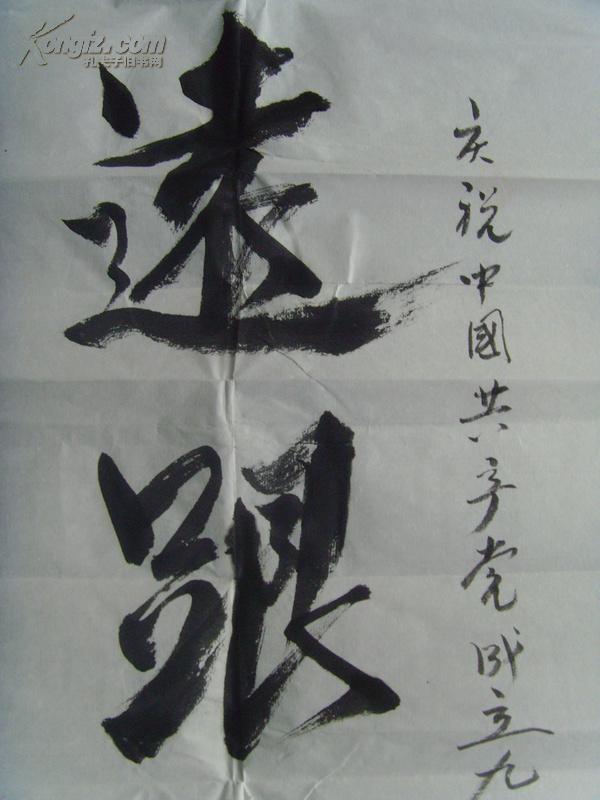 庆祝中國共产党成立九
遠
跟
Kongfz.com
孔夫子旧书网